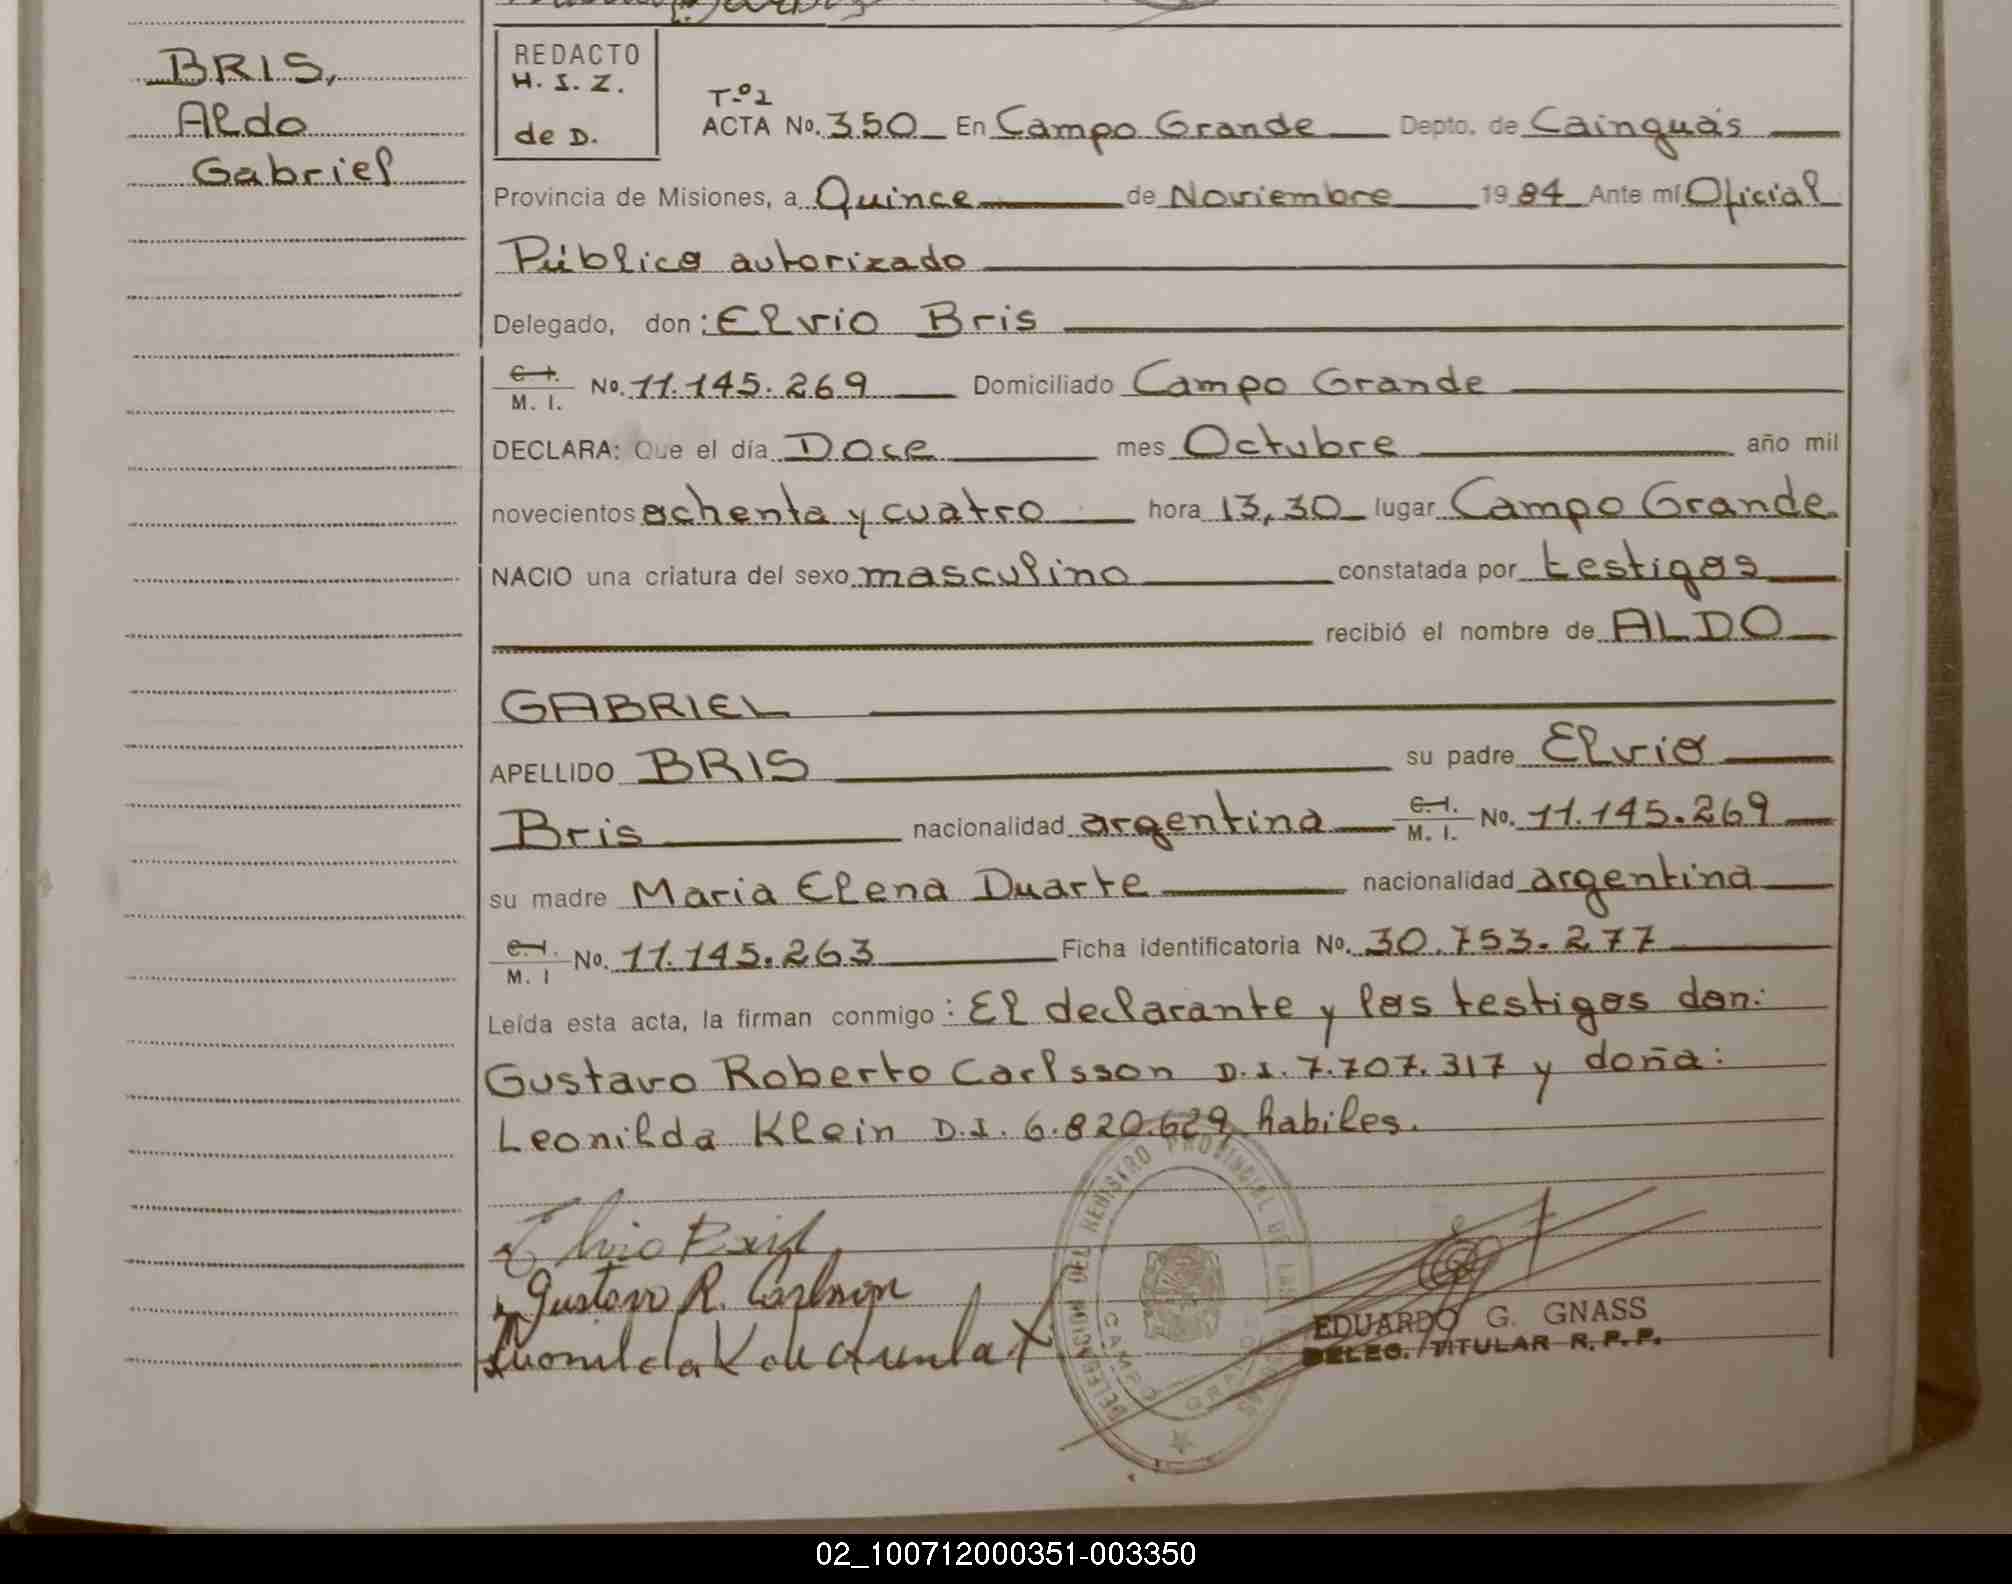 BRIS,
Aldo
Gabriel
REDACTO
H. I. Z.
de D.
T-º1
ACTA No. 350 En Campo Grande Depto. de Cainguás
Provincia de Misiones, a Quince de Noviembre 1984 Ante mí Oficial
Público autorizado
Delegado, don: Elvio Bris
C. I.
M. I. No. 11.145.269 Domiciliado Campo Grande
DECLARA: Que el día Doce mes Octubre año mil
novecientos ochenta y cuatro hora 13,30 lugar Campo Grande
NACIO una criatura del sexo masculino constatada por testigos
recibió el nombre de ALDO
GABRIEL
APELLIDO BRIS su padre Elvio
Bris nacionalidad argentina C. I. M. I. No. 11.145.269
su madre Maria Elena Duarte nacionalidad argentina
C. I.
M. I No. 11.145.263 Ficha identificatoria No. 30.753.277
Leída esta acta, la firman conmigo: El declarante y los testigos don:
Gustavo Roberto Carlsson D.I. 7.707.317 y doña:
Leonilda Klein D.I. 6.820.629, habiles.
Elvio Bris
Gustavo R. Carlsson
DELEGACION DEL REGISTRO PROVINCIAL DE LAS PERSONAS
CAMPO GRANDE
EDUARDO G. GNASS
DELEG. TITULAR R. P. P.
02_100712000351-003350